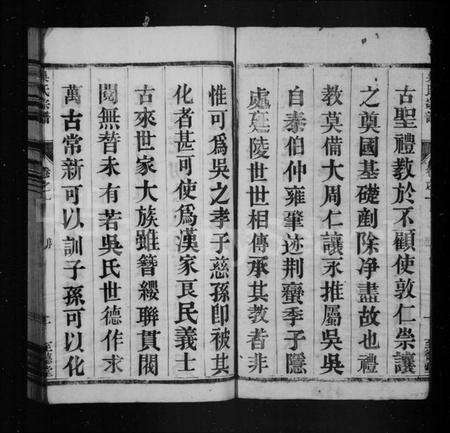 古聖禮教於不顧使敦仁崇讓
之奠國基礎剷除淨盡故也禮
教莫備大周仁讓永推屬吳吳
自泰伯仲雍肇迹荆蠻季子隱
處延陵世世相傳承其教者非
惟可爲吳之孝子慈孫卽被其
化者甚可使爲漢家良民義士
古來世家大族雖簪纓聯貫閥
閱無替未有若吳氏世德作求
萬古常新可以訓子孫可以化
吳氏宗譜